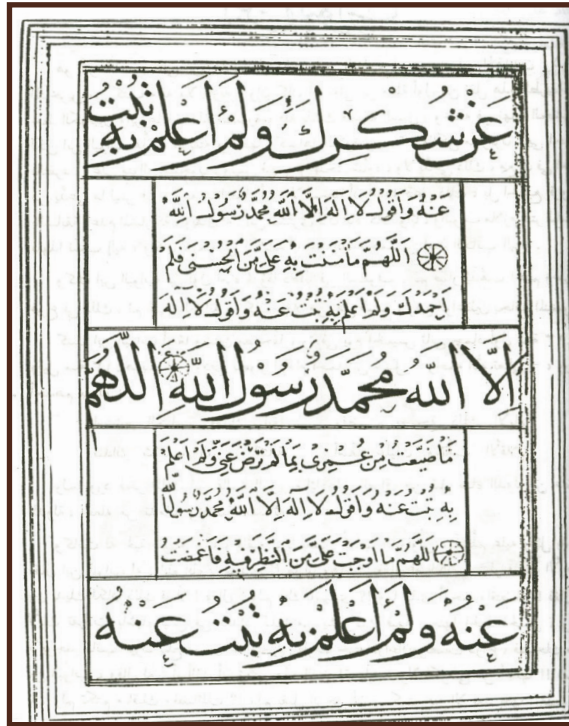 عَنْ شُكْرِكَ وَلَمْ أَعْلَمْ بِهِ تُبْتُ
عَنْهُ وَأَقُولُ لَا إِلَهَ إِلَّا اللَّهُ مُحَمَّدٌ رَسُولُ اللَّهِ
اللَّهُمَّ مَا مَنَنْتَ بِهِ عَلَيَّ مِنَ الْحُسْنَى فَلَمْ
أَحْمَدْكَ وَلَمْ أَعْلَمْ بِهِ تُبْتُ عَنْهُ وَأَقُولُ لَا إِلَهَ
إِلَّا اللَّهُ مُحَمَّدٌ رَسُولُ اللَّهِ اللَّهُمَّ
مَا ضَيَّعْتُ مِنْ عُمْرِي بِمَا لَمْ تَرْضَ عَنِّي وَلَمْ أَعْلَمْ
بِهِ تُبْتُ عَنْهُ وَأَقُولُ لَا إِلَهَ إِلَّا اللَّهُ مُحَمَّدٌ رَسُولُ اللَّهِ
اللَّهُمَّ مَا أَوْجَبْتَ عَلَيَّ مِنَ النَّظَرِ فِيهِ فَأَغْمَضْتُ
عَنْهُ وَلَمْ أَعْلَمْ بِهِ تُبْتُ عَنْهُ